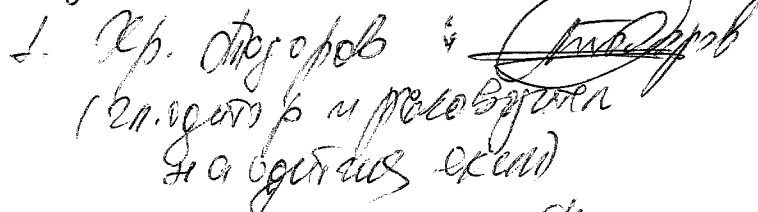 1. Хр. Тодоров :
(гл. одитор и ръководител
на одитния екип)